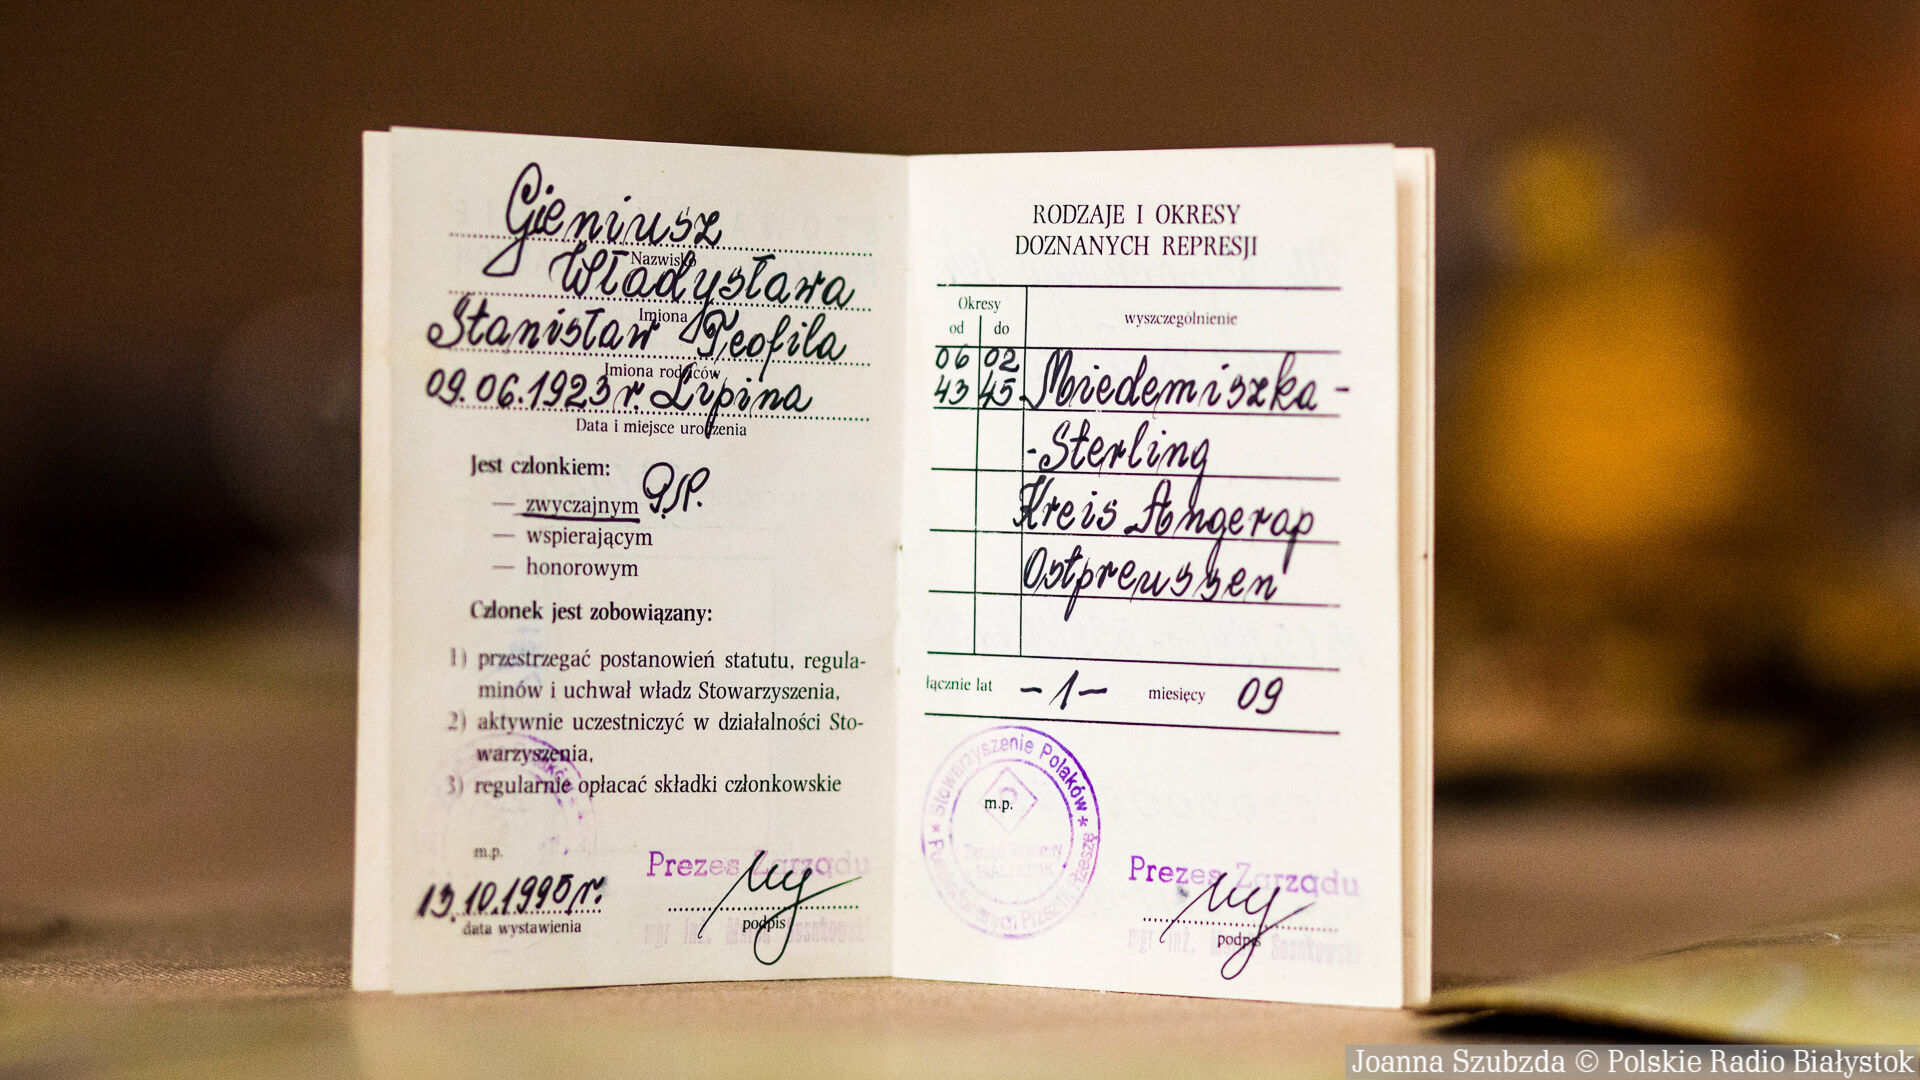 Gieniusz
Nazwisko
Władysława
Imiona
Stanisław Teofila
Imiona rodziców
09.06.1923 r. Lipina
Data i miejsce urodzenia
Jest członkiem:
— zwyczajnym
— wspierającym
— honorowym
Członek jest zobowiązany:
1) przestrzegać postanowień statutu, regula-
minów i uchwał władz Stowarzyszenia,
2) aktywnie uczestniczyć w działalności Sto-
warzyszenia,
3) regularnie opłacać składki członkowskie
m.p.
Prezes Zarządu
13.10.1995 r.
data wystawienia
podpis
mgr inż.
RODZAJE I OKRESY
DOZNANYCH REPRESJI
Okresy
od do
wyszczególnienie
06 02
43 45 Miedemiszka-
-Sterling
Kreis Angerap
Ostpreussen
łącznie lat -1- miesięcy 09
Stowarzyszenie Polaków
m.p.
BIAŁYSTOK
Prezes Zarządu
podpis
mgr inż.
Joanna Szubzda © Polskie Radio Białystok